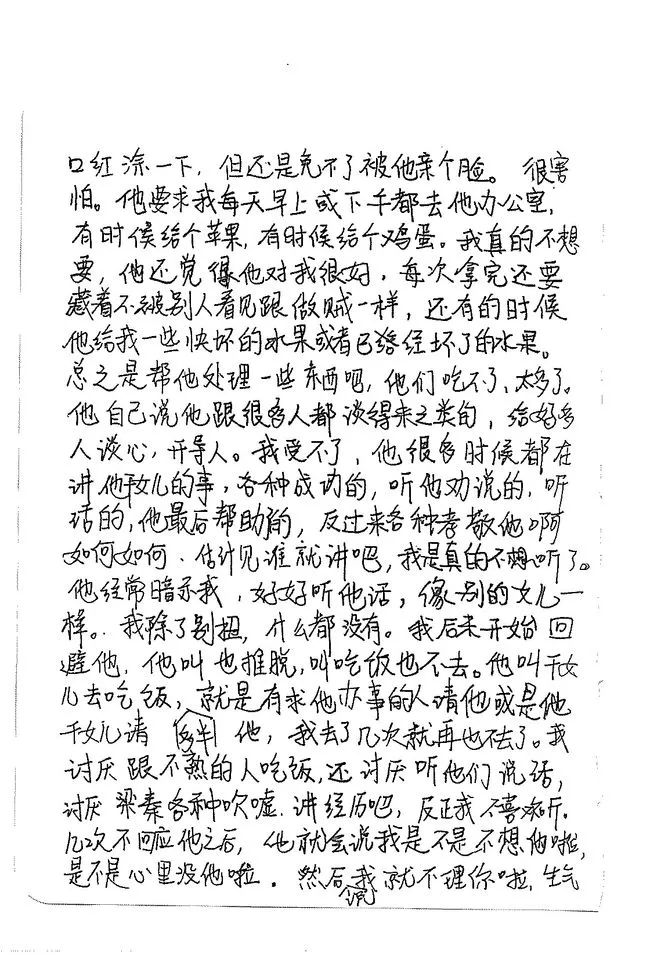 口红涂一下，但还是免不了被他亲个脸。很害
怕。他要求我每天早上或下午都去他办公室，
有时候给个苹果，有时候给个鸡蛋。我真的不想
要，他还觉得他对我很好，每次拿完还要
藏着不被别人看见跟做贼一样，还有的时候
他给我一些快坏的水果或者已经坏了的水果。
总之是帮他处理一些东西吧，他们吃不了，太多了。
他自己说他跟很多人都谈得来之类的，给好多
人谈心，开导人。我受不了，他很多时候都在
讲他干女儿的事，各种成功的，听他劝说的，听
话的，他最后帮助的，反过来各种孝敬他啊
如何如何、估计见谁就讲吧，我是真的不想听了。
他经常暗示我，好好听他话，像别的女儿一
样。我除了别扭，什么都没有。我后来开始回
避他，他叫也推脱，叫吃饭也不去。他叫干女
儿去吃饭，就是有求他办事的人请他或是他
干女儿请他，我去了几次就再也不去了。我
讨厌跟不熟的人吃饭，还讨厌听他们说话，
讨厌梁秦各种吹嘘、讲经历吧，反正我不喜欢听。
几次不回应他之后，他就会说我是不是不想他啦，
是不是心里没他啦。然后说我就不理你啦，生气